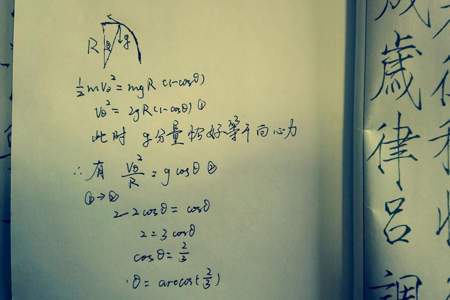 R θ g
½mv_θ² = mgR(1-cosθ)
v_θ² = 2gR(1-cosθ) ①
此时 g分量恰好等于向心力
∴有 v_θ²/R = gcosθ ②
①→②
2-2cosθ = cosθ
2=3cosθ
cosθ = 2/3
θ = arccos(2/3)
歲
律
呂
調